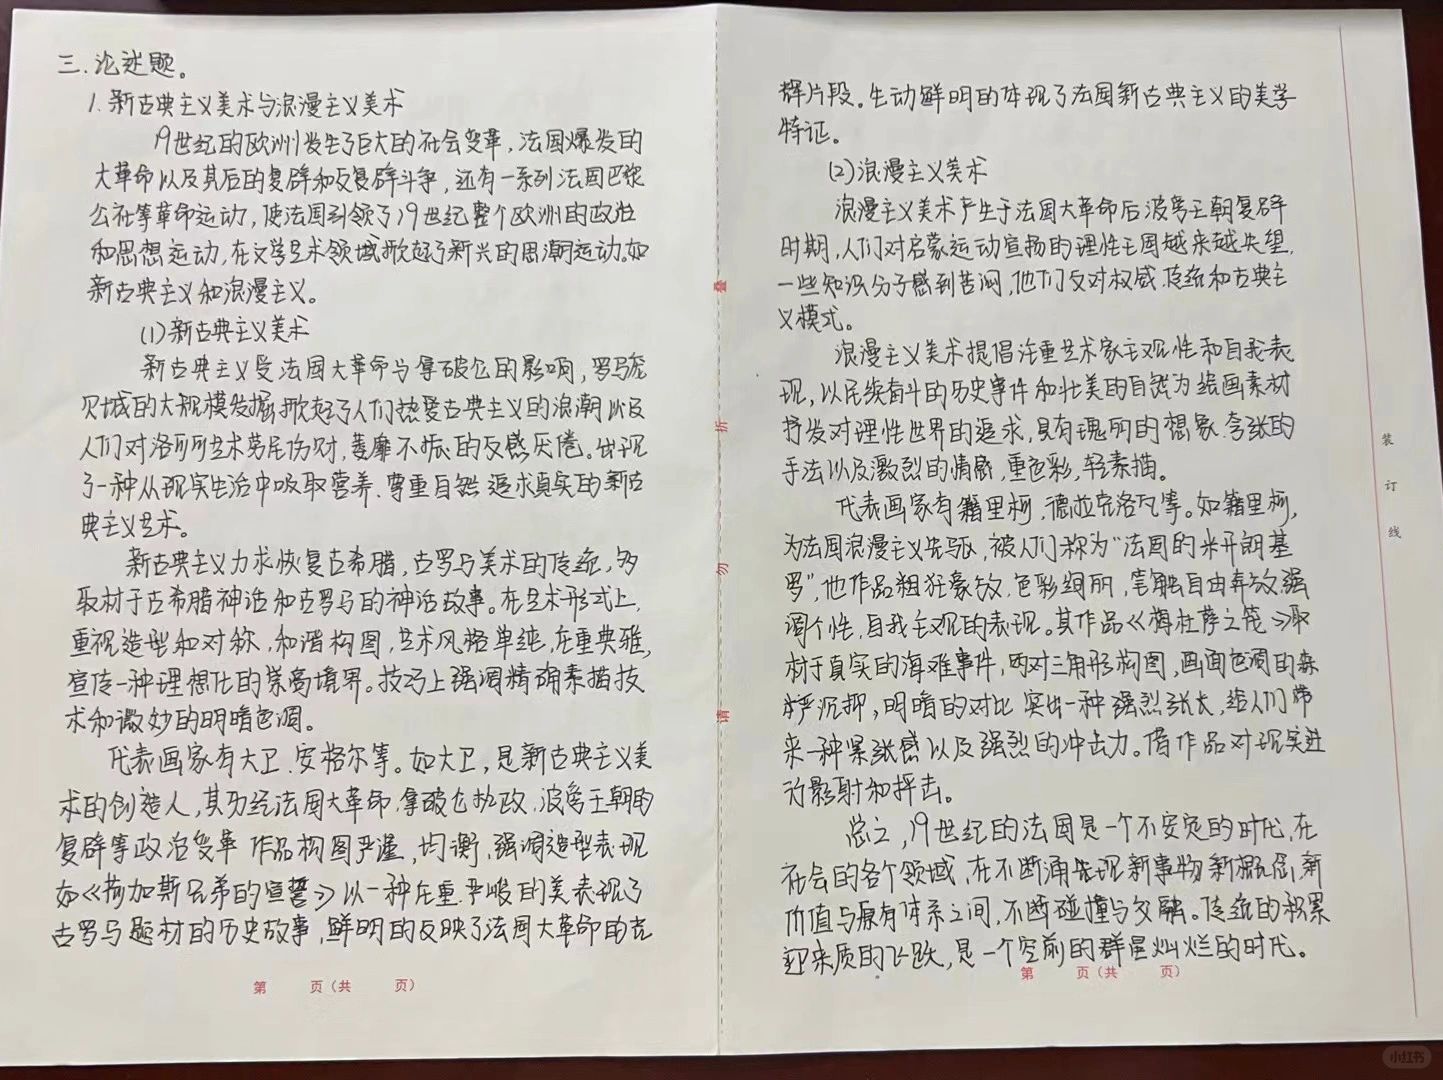 三.论述题。
1.新古典主义美术与浪漫主义美术
19世纪的欧洲发生了巨大的社会变革,法国爆发的
大革命以及其后的复辟和反复辟斗争,还有一系列法国巴黎
公社等革命运动,使法国引领了19世纪整个欧洲的政治
和思想运动,在文学艺术领域掀起了新兴的思潮运动。如
新古典主义和浪漫主义。
(1)新古典主义美术
新古典主义受法国大革命与拿破仑的影响,罗马庞
贝城的大规模发掘掀起了人们热爱古典主义的浪潮以及
人们对洛可可艺术劳民伤财,萎靡不振的反感厌倦。出现
了一种从现实生活中吸取营养、尊重自然追求真实的新古
典主义艺术。
新古典主义力求恢复古希腊,古罗马美术的传统,多
取材于古希腊神话和古罗马的神话故事。在艺术形式上,
重视造型和对称,和谐构图,艺术风格单纯,庄重典雅,
宣传一种理想化的崇高境界。技巧上强调精确素描技
术和微妙的明暗色调。
代表画家有大卫、安格尔等。如大卫,是新古典主义美
术的创造人,其历经法国大革命,拿破仑执政,波旁王朝的
复辟等政治变革 作品构图严谨,均衡,强调造型表现
如《荷加斯兄弟的宣誓》以一种庄重严峻的美表现了
古罗马题材的历史故事,鲜明的反映了法国大革命的光
辉片段。生动鲜明的体现了法国新古典主义的美学
特证。
(2)浪漫主义美术
浪漫主义美术产生于法国大革命后波旁王朝复辟
时期,人们对启蒙运动宣扬的理性王国越来越失望,
一些知识分子感到苦闷,他们反对权威、传统和古典主
义模式。
浪漫主义美术提倡注重艺术家主观性和自我表
现,以民族奋斗的历史事件和壮美的自然为绘画素材
抒发对理性世界的追求,具有瑰丽的想象、夸张的
手法以及激烈的情感,重色彩,轻素描。
代表画家有籍里柯,德拉克洛瓦等。如籍里柯,
为法国浪漫主义先驱,被人们称为“法国的米开朗基
罗”,他作品粗狂豪放,色彩绚丽,笔触自由奔放,强
调个性,自我主观的表现。其作品《梅杜萨之筏》取
材于真实的海难事件,的对三角形构图,画面色调的森
严沉抑,明暗的对比 突出一种强烈张大,给人们带
来一种紧张感以及强烈的冲击力。借作品对现实进
行影射和抨击。
总之,19世纪的法国是一个不安定的时代,在
社会的各个领域,在不断涌先现新事物新概念,新
价值与原有体系之间,不断碰撞与交融。传统的积累
迎来质的飞跃,是一个空前的群星灿烂的时代。
请 勿 折 叠
装 订 线
第 页(共 页)
第 页(共 页)
小红书